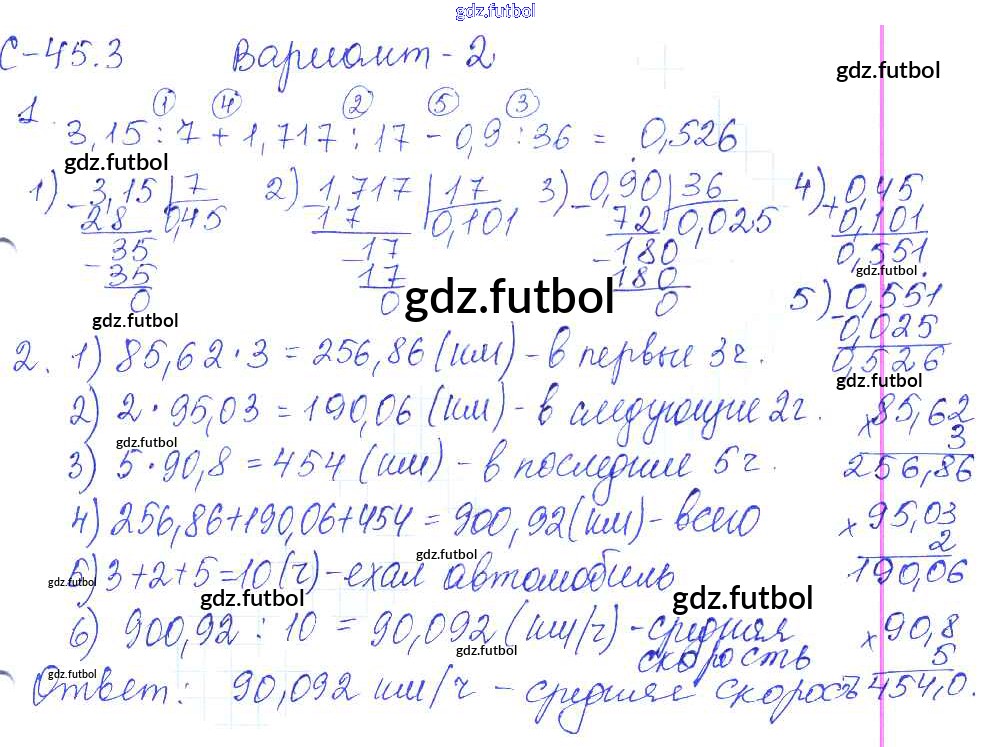 gdz.futbol
С-45.3 Вариант-2
gdz.futbol
① ④ ② ⑤ ③
1. 3,15 : 7 + 1,717 : 17 - 0,9 : 36 = 0,526
gdz.futbol
1) - 3,15 | 7 2) - 1,717 | 17 3) - 0,90 | 36 4) + 0,45
28 0,45 17 0,101 72 0,025 0,101
35 - 17 - 180 0,551
- 35 17 180 gdz.futbol
0 0 0 5) - 0,551
gdz.futbol gdz.futbol 0,025
0,526
2. 1) 85,62 · 3 = 256,86 (км) - в первые 3ч.
gdz.futbol
2) 2 · 95,03 = 190,06 (км) - в следующие 2ч. × 85,62
gdz.futbol 3
3) 5 · 90,8 = 454 (км) - в последние 5ч. 256,86
4) 256,86+190,06+454 = 900,92(км) - всего × 95,03
gdz.futbol gdz.futbol 2
5) 3+2+5=10(ч) - ехал автомобиль 190,06
gdz.futbol gdz.futbol gdz.futbol
6) 900,92 : 10 = 90,092 (км/ч) - средняя × 90,8
скорость 5
gdz.futbol gdz.futbol
Ответ: 90,092 км/ч - средняя скорость 454,0.